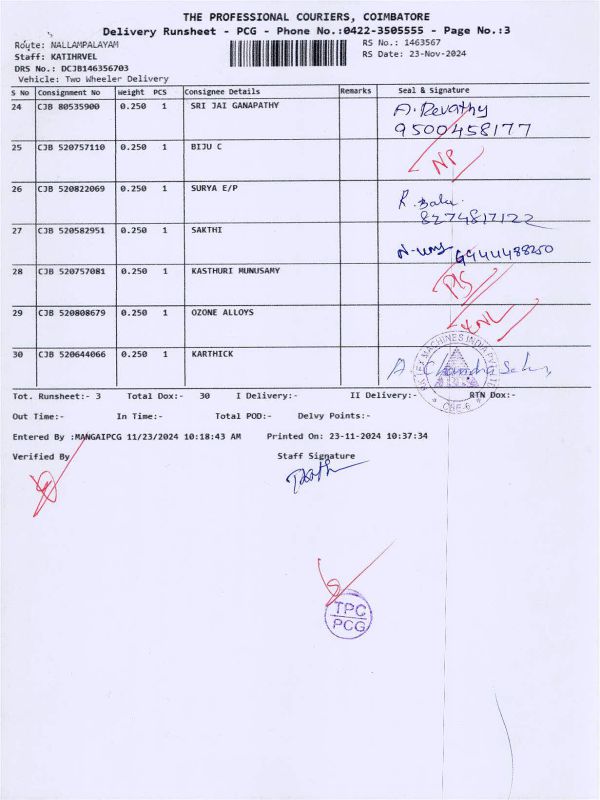 THE PROFESSIONAL COURIERS, COIMBATORE
Delivery Runsheet - PCG - Phone No.:0422-3505555 - Page No.:3
Route: NALLAMPALAYAM RS No.: 1463567
Staff: KATIHRVEL RS Date: 23-Nov-2024
DRS No.: DCJB146356703
Vehicle: Two Wheeler Delivery
S No Consignment No Weight PCS Consignee Details Remarks Seal & Signature
24 CJB 80535900 0.250 1 SRI JAI GANAPATHY A. Revathy
9500458177
25 CJB 520757110 0.250 1 BIJU C NP
26 CJB 520822069 0.250 1 SURYA E/P R. Balu.
8274817122
27 CJB 520582951 0.250 1 SAKTHI 9944488250
28 CJB 520757081 0.250 1 KASTHURI MUNUSAMY
29 CJB 520808679 0.250 1 OZONE ALLOYS
30 CJB 520644066 0.250 1 KARTHICK A
MACHINES INDIA PVT LTD
CBE-6
Tot. Runsheet:- 3 Total Dox:- 30 I Delivery:- II Delivery:- RTN Dox:-
Out Time:- In Time:- Total POD:- Delvy Points:-
Entered By :MANGAIPCG 11/23/2024 10:18:43 AM Printed On: 23-11-2024 10:37:34
Verified By Staff Signature
TPC
PCG